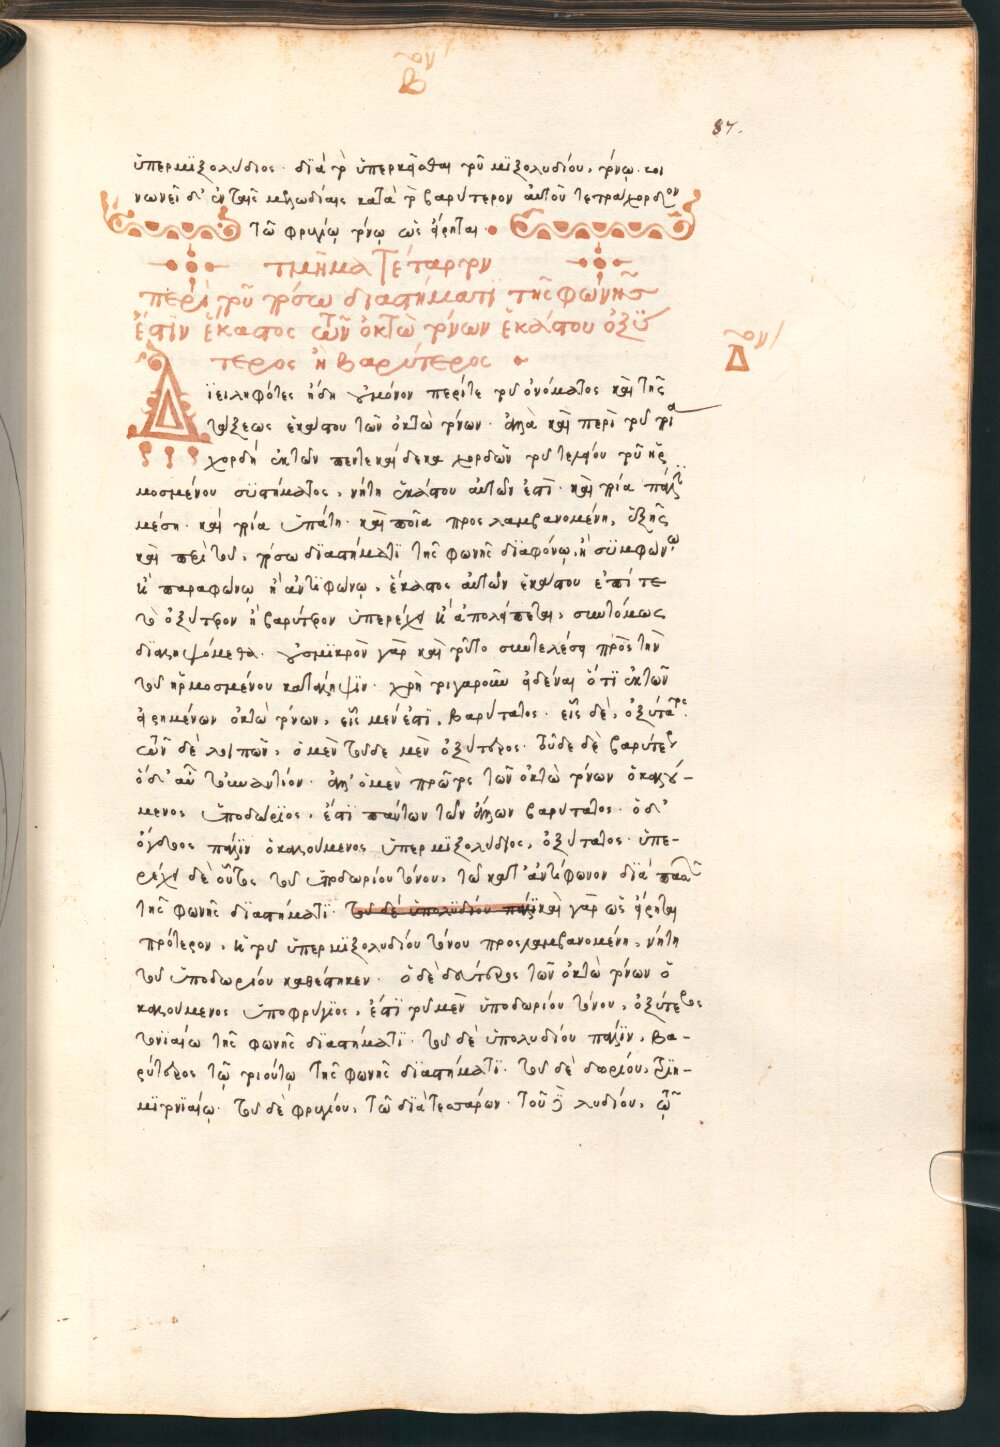 Βον
87.
ὑπερμιξολύδιος· διὰ τὸ ὑπερκεῖσθαι τοῦ μιξολυδίου, τόνῳ· κοι
νωνεῖ δ' ἐν ταῖς μελωδίαις κατὰ τὸ βαρύτερον αὐτοῦ τετράχορδον
τῶ φρυγίῳ τόνῳ ὡς εἴρηται
τμῆμα Τέταρτον
περὶ τοῦ πόσω διαστήματι τῆς φωνῆς
ἐστὶν ἕκαστος τῶν ὀκτὼ τόνων ἑκάστου ὀξύ
τερος ἢ βαρύτερος
Δον
Διειληφότες ἤδη οὐ μόνον περί τε τοῦ ὀνόματος καὶ τῆς
τάξεως ἑκάστου τῶν ὀκτὼ τόνων· ἀλλὰ καὶ περὶ τοῦ τίς
χορδὴ ἐκ τῶν πεντεκαίδεκα χορδῶν τοῦ τελείου τοῦ ἡρ
μοσμένου συστήματος, νήτη ἑκάστου αὐτῶν ἐστὶ· καὶ ποία πάλιν
μέση· καὶ ποία ὑπάτη· καὶ ποία προσλαμβανομένη, ἑξῆς
καὶ περὶ τοῦ, πόσω διαστήματι τῆς φωνῆς διαφόνῳ, ἢ συμφώνῳ
ἢ παραφώνῳ ἢ ἀντιφώνῳ, ἕκαστος αὐτῶν ἑκάστου ἐπί τε
τὸ ὀξύτερον ἢ βαρύτερον ὑπερέχει ἢ ἀπολείπεται, συντόμως
διαληψόμεθα· οὐ σμικρὸν γὰρ καὶ τοῦτο συντελέσει πρὸς τὴν
τοῦ ἡρμοσμένου κατάληψιν· χρὴ τοιγαροῦν εἰδέναι ὅτι ἐκ τῶν
εἰρημένων ὀκτὼ τόνων, εἷς μέν ἐστι, βαρύτατος· εἷς δὲ, ὀξύτατος·
τῶν δὲ λοιπῶν, ὁ μὲν τοῦδε μὲν ὀξύτερος· τοῦδε δὲ βαρύτερος
ὁ δ' αὖ τοὐναντίον· ἀλλ' ὁ μὲν πρῶτος τῶν ὀκτὼ τόνων ὁ καλού-
μενος ὑποδώριος, ἐστὶ πάντων τῶν ἄλλων βαρύτατος· ὁ δ'
ὄγδοος πάλιν ὁ καλούμενος ὑπερμιξολύδιος, ὀξύτατος· ὑπε-
ρέχει δὲ οὗτος τοῦ ὑποδωρίου τόνου, τῶ κατ' ἀντίφωνον διὰ πασῶν
τῆς φωνῆς διαστήματι· τοῦ δὲ ὑπολυδίου πάλιν καὶ γὰρ ὡς εἴρηται
πρότερον, ἡ τοῦ ὑπερμιξολυδίου τόνου προσλαμβανομένη, νήτη
τοῦ ὑποδωρίου καθέστηκεν· ὁ δὲ δεύτερος τῶν ὀκτὼ τόνων ὁ
καλούμενος ὑποφρύγιος, ἐστὶ τοῦ μὲν ὑποδωρίου τόνου, ὀξύτερος
τονιαίω τῆς φωνῆς διαστήματι· τοῦ δὲ ὑπολυδίου πάλιν, βα-
ρύτερος τῷ τοιούτῳ τῆς φωνῆς διαστήματι· τοῦ δὲ δωρίου, τριη-
μιτονιαίῳ· τοῦ δὲ φρυγίου, τῶ διὰ τεσσάρων· τοῦ δὲ λυδίου, τῷ